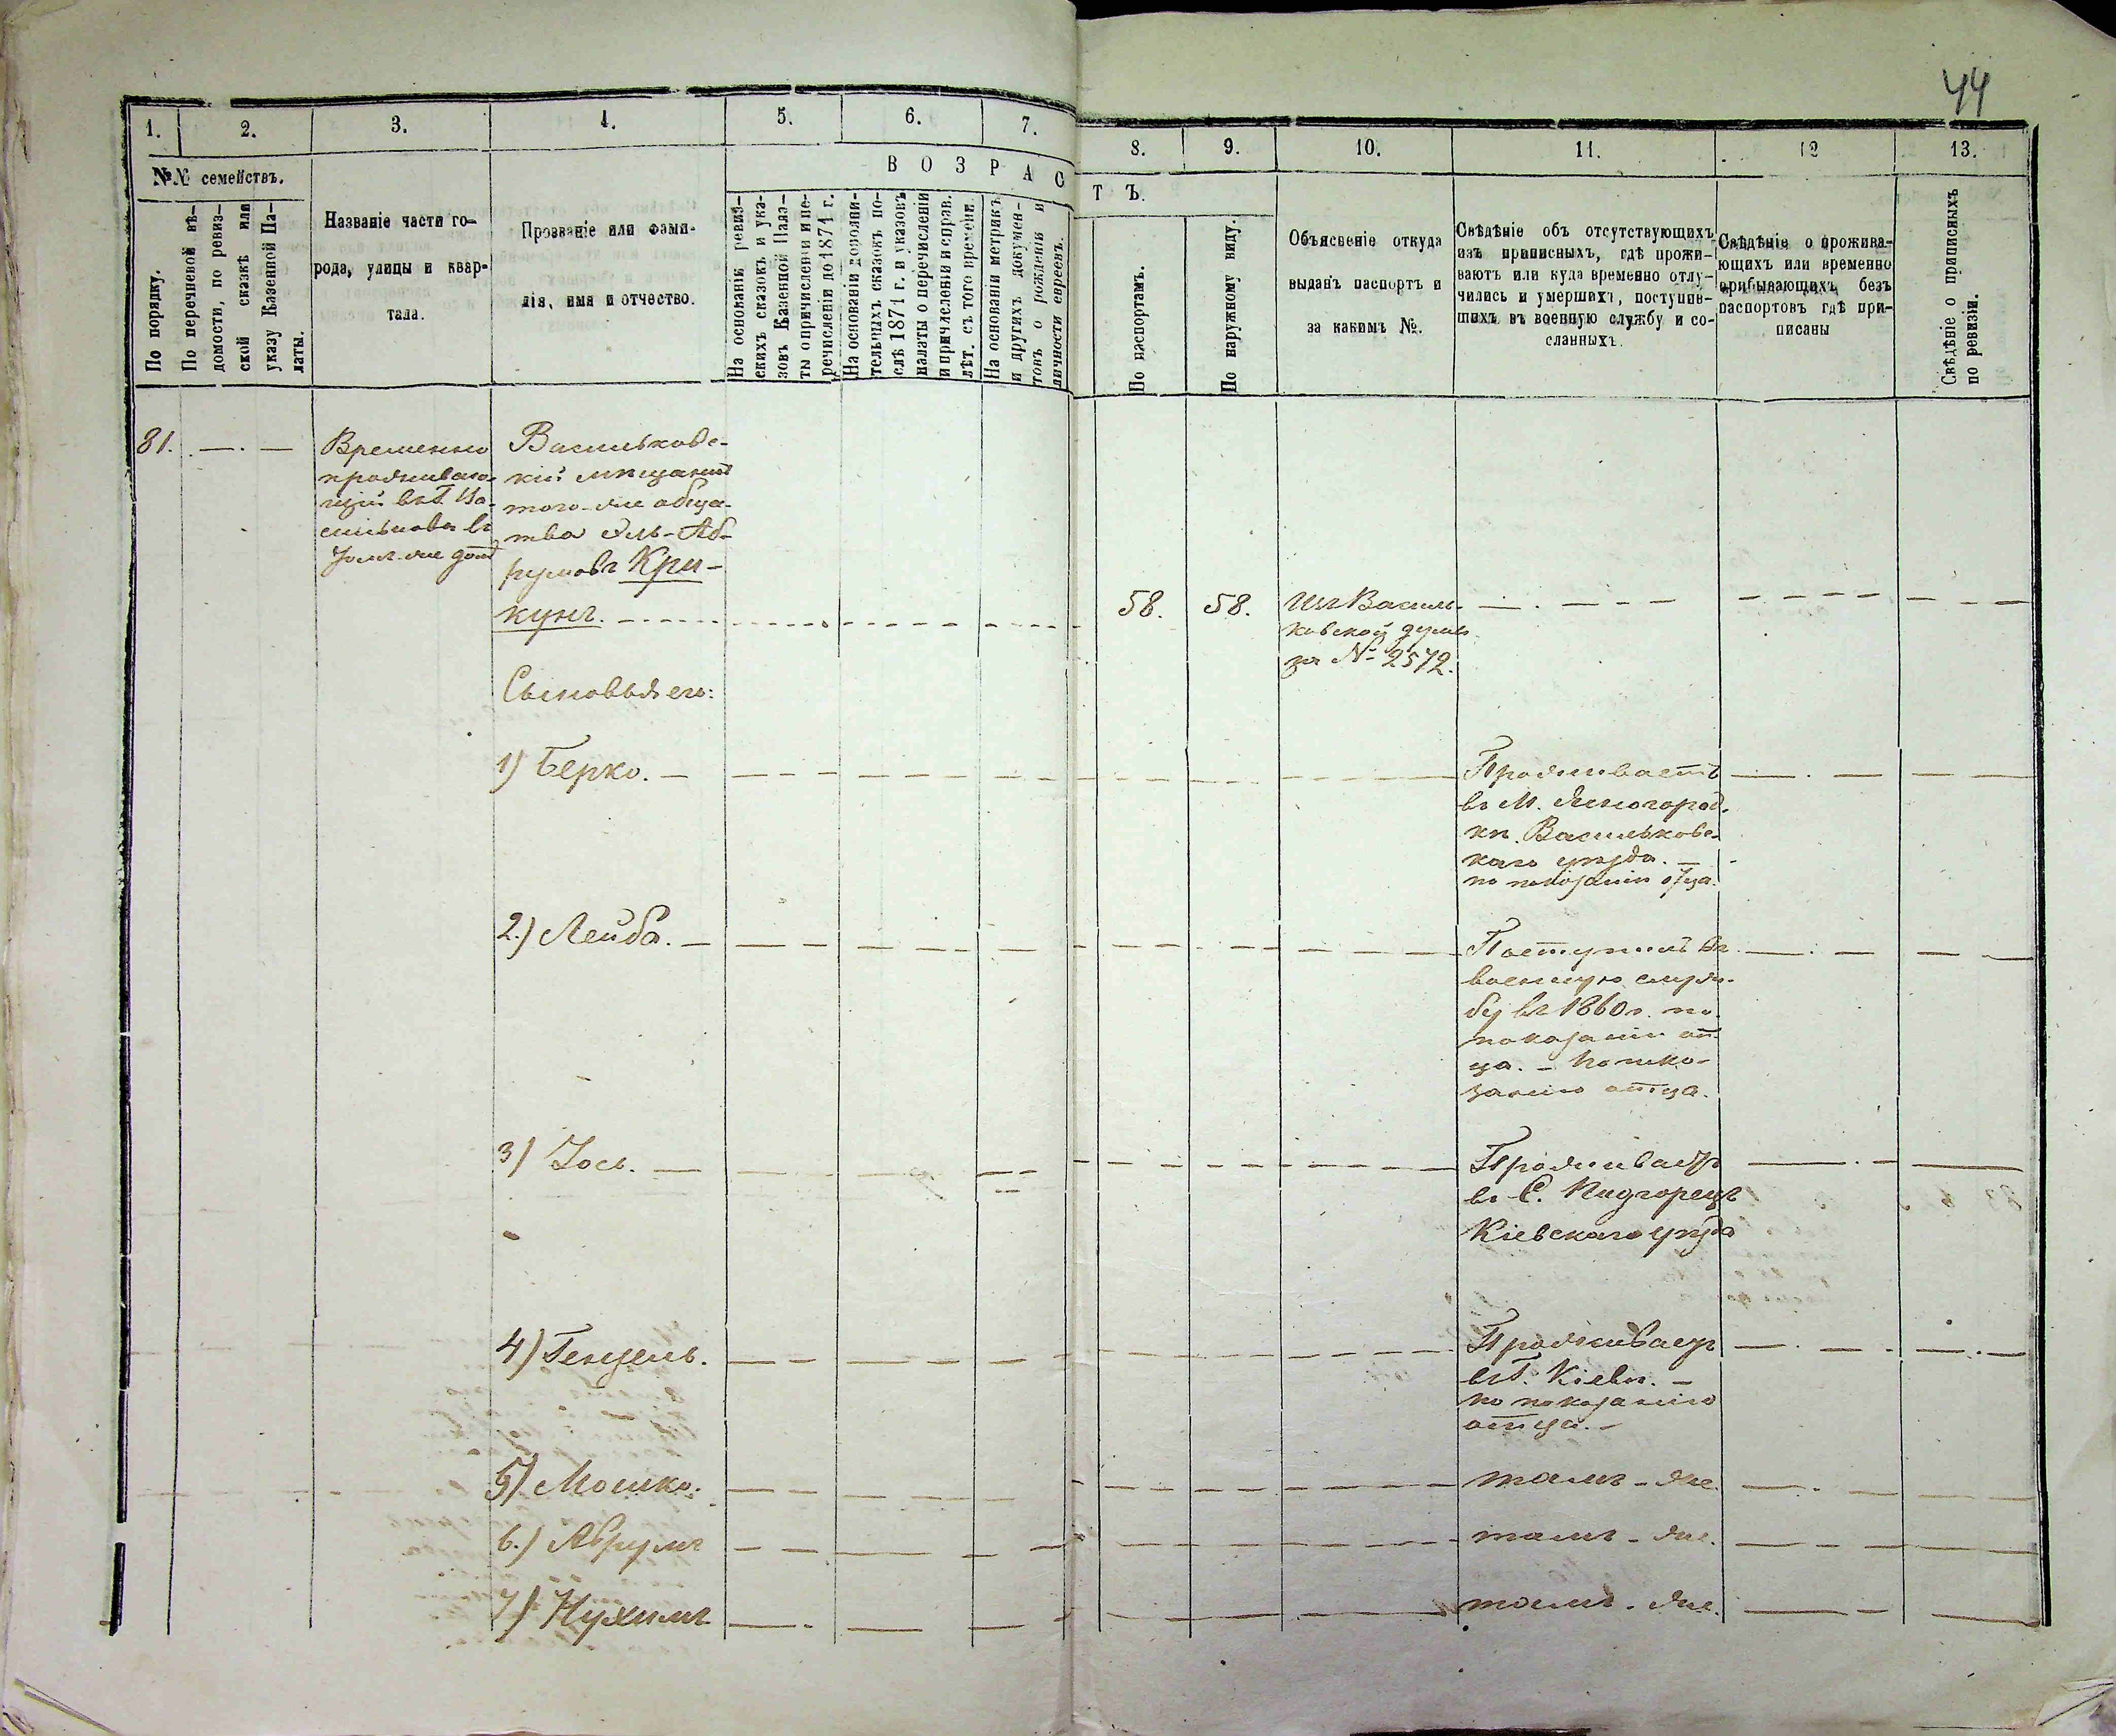 44
1.
2.
3.
4.
5.
6.
7.
8.
9.
10.
11.
12
13.
№№ семействъ.
По порядку.
По перечневой вѣ-
домости, по ревиз-
ской сказкѣ или
указу Казенной Па-
латы.
Названіе части го-
рода, улицы и квар-
тала.
Прозваніе или фами-
лія, имя и отчество.
ВОЗРАСТЪ.
На основаніи ревиз-
скихъ сказокъ и ука-
зовъ Казенной Пала-
ты о причисленіи и пе-
речисленіи до 1871 г.
На основаніи дополни-
тельныхъ сказокъ по-
слѣ 1871 г. и указовъ
палаты о перечисленіи
и причисленіи и справ.
лѣт. съ того времени.
На основаніи метрикъ
и другихъ докумен-
товъ о рожденіи и
личности евреевъ.
По паспортамъ.
По наружному виду.
Объясненіе откуда
выданъ паспортъ и
за какимъ №.
Свѣдѣніе объ отсутствующихъ
изъ приписныхъ, гдѣ прожи-
ваютъ или куда временно отлу-
чились и умершихъ, поступив-
шихъ въ военную службу и со-
сланныхъ.
Свѣдѣніе о прожива-
ющихъ или временно
прибывающихъ безъ
паспортовъ гдѣ при-
писаны
Свѣдѣніе о приписныхъ
по ревизіи.
81.
Временно
проживаю-
щій въ Г. Ва-
сильковѣ въ
томъ-же домѣ
Васильковс-
кій мѣщанинъ
того-же общес-
тва Эль-Аб-
румовъ Кри-
кунъ.
58.
58.
Изъ Василь-
ковской думы
за № 2572.
Сыновья его:
1) Берко.
Проживаетъ
въ М. Ясногород-
кѣ Васильковс-
каго уѣзда. —
по показанію отца.
2.) Лейба.
Поступилъ въ
военную служ-
бу въ 1860 г. по
показанію от-
ца. — По пока-
занію отца.
3) Іось.
Проживаетъ
въ С. Пидгорецъ
Кіевскаго уѣзда
4) Гендель.
Проживаетъ
въ Г. Кіевѣ. —
по показанію
отца. —
5) Мошко.
тамъ-же.
6.) Абрумъ
тамъ-же.
7) Нухимъ
тамъ-же.